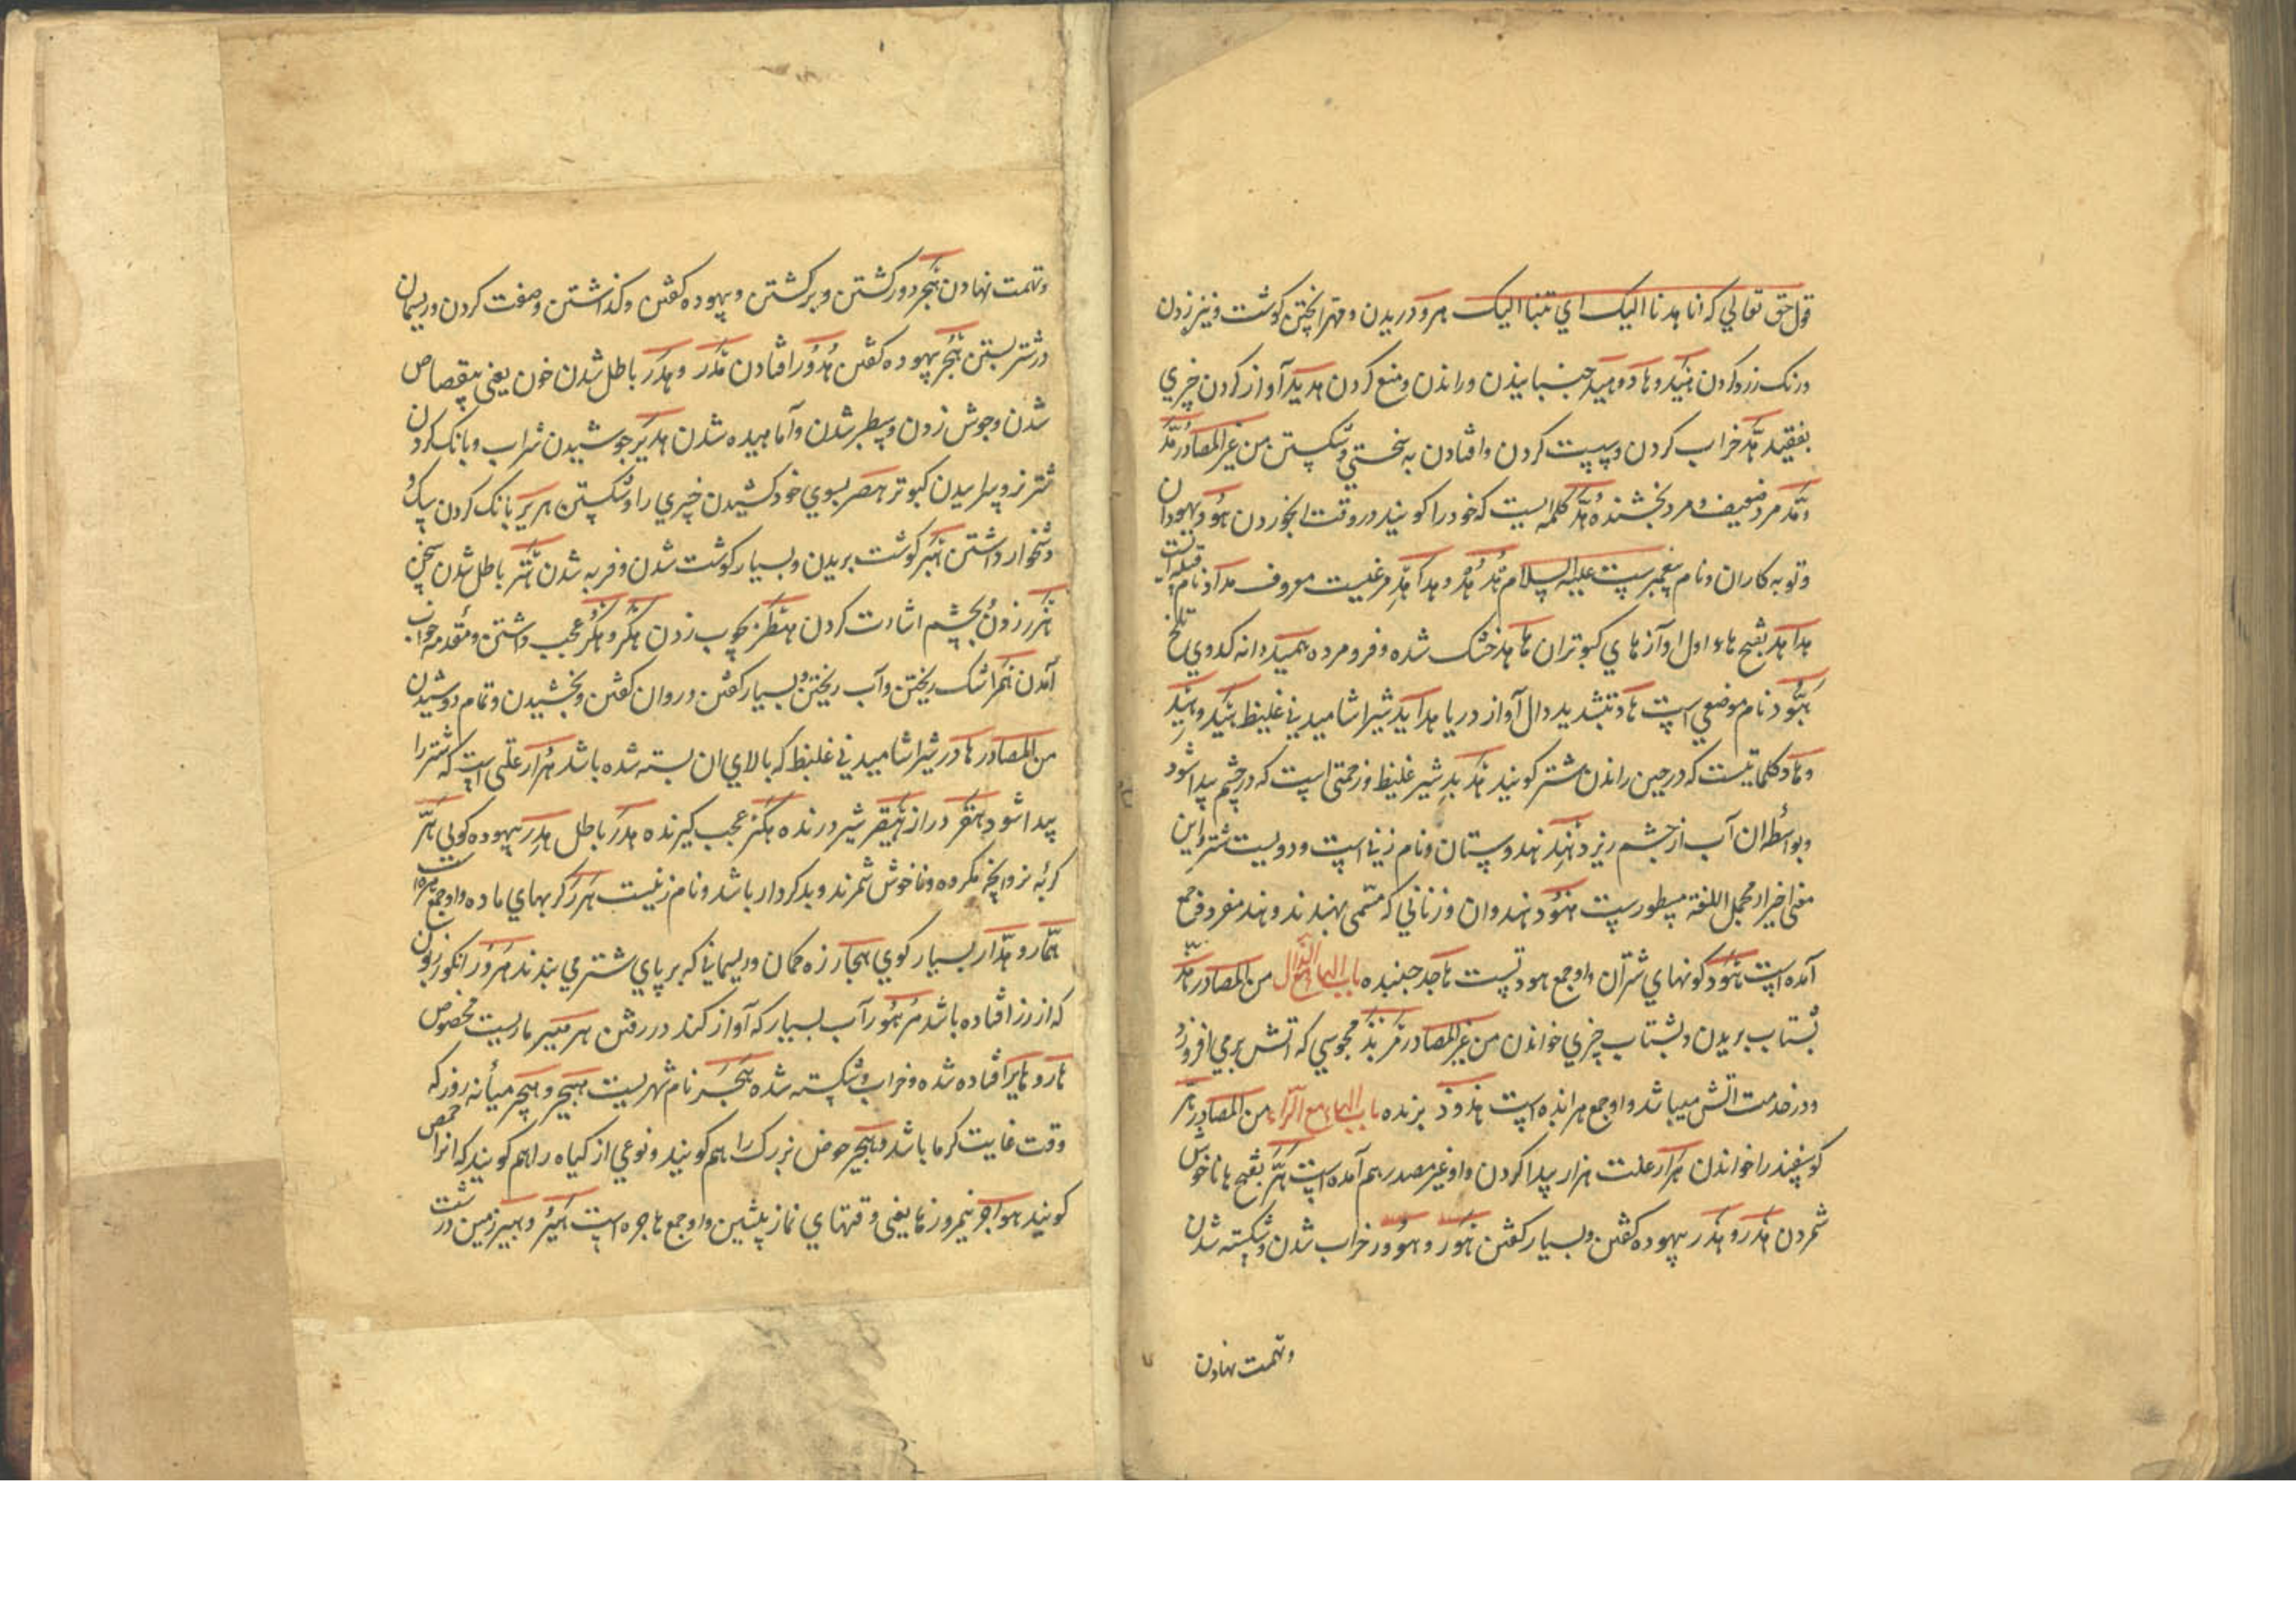 قول حق تعالي که انا هدنا اليک اي تبنا اليک هرود دريدن و مهرا پختن کوشت و نيزه زدن
و رنک زرد کردن هيد و هاد و هيد جنبانيدن و راندن و منع کردن هديد آواز کردن چيزي
بفقيد هد خراب کردن و پست کردن و افتادن به سختي و شکستن من غير المصادر هد
و هد مرد ضعيف و مرد بخشنده هد کلمه ايست که خود را کويند در وقت هود يهودان
و توبه کاران و نام پيغمبريست عليه السلام هدهد و هداهد مرغيست معروف هداد نام قبيله است
هداهد بفتح هاء اول آوازهاي کبوتران هامد خشک شده و فرو مرده هبيد دانه کدوي تلخ
هبود نام موضعي است هاد بتشديد دال آواز دريا هدابد شير آشاميدني غليظ هيد و هيد
و هاد کلماتيست که در حين راندن شتر کويند هدبد شير غليظ و زحمتي است که در چشم پيدا شود
و بواسطه ان آب از چشم ريزد هند هندوستان و نام زني است و دويست شتر و اين
معني اخير از مجمل اللغة مسطورست هنود هندوان و زناني که مسمي بهندند و هند مفرد و جمع
آمده است هود کونهاي شتران و او جمع هودتست هاجد جنبده باب الهاء مع الذال من المصادر هذ
بشتاب بريدن و بشتاب چيزي خواندن من غير المصادر هربذ مجوسي که آتش برمي افروزد
و در خدمت آتش ميباشد و او جمع هرابذه است هذوذ برنده باب الهاء مع الراء من المصادر هر
کوسفند را خواندن هرار علت هرار پيدا کردن و او غير مصدر هم آمده است هر بفتح ها ناخوش
شمردن هذر و هذر بيهوده کفتن و بسيار کفتن هور و هوور خراب شدن و شکسته شدن
و تهمت نهادن
و تهمت نهادن هجر دور کشتن و برکشتن و بيهوده کفتن و کذاشتن و صفت کردن و ريسمان
در شتر بستن هجر بيهوده کفتن هدور افتادن هدر و هدر باطل شدن خون يعني بيقصاص
شدن و جوش زدن و سطبر شدن و آماهيده شدن هدير جوشيدن شراب و بانک کردن
شتر نر و پرانيدن کبوتر هصر بسوي خود کشيدن چيزي را و شکستن هرير بانک کردن سک
و دشخوار داشتن هبر کوشت بريدن و بسيار کوشت شدن و فربه شدن هتر باطل شدن سخن
هزر زدن بچشم اشارت کردن هطر بچوب زدن هکر و هکر عجب داشتن و مقدمه خواب
آمدن همر اشک ريختن و آب ريختن و بسيار کفتن و روان کفتن و بخشيدن و تمام دوشيدن
من المصادر هادر شير آشاميدني غليظ که بالاي ان بسته شده باشد هرار علتي است که شتر را
پيدا شود هقر دراز هيصر شير درنده هکر عجب کيرنده هدر باطل هدر بيهوده کوي هر
کربه نر و انچه مکروه و ناخوش شمرند و بدکردار باشد و نام زنيست هرر کربهاي ماده و او جمع هره است
همار و هدار بسيار کوي هجار زه کمان و ريسماني که بر پاي شتر مي بندند هرور انکور زبون
که از رز افتاده باشد هرهور آب بسيار که آواز کند در رفتن هرمسير ماريست مخصوص
هار و هاير افتاده شده و خراب و شکسته شده هجر نام شهريست هجير و هجر ميانه روز که
وقت غايت کرما باشد و هجير حوض بزرک را هم کويند و نوعي از کياه را هم کويند که انرا حمض
کويند هواجر نيمروزها يعني وقتهاي نماز پيشين و او جمع هاجره است هبر و هبير زمين درشت